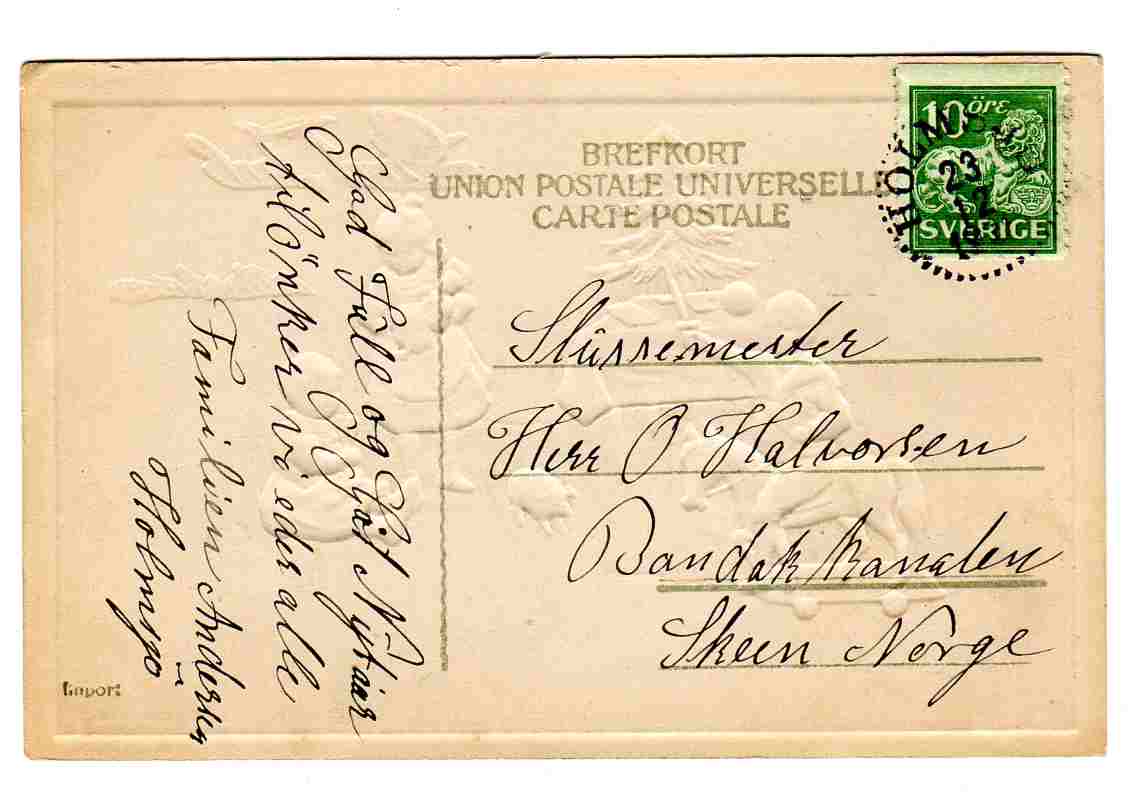 BREFKORT
UNION POSTALE UNIVERSELLE
CARTE POSTALE
10 öre
SVERIGE
HOLMS
23
12
Slussemester
Herr O Halvorsen
Bandak kanalen
Skeen Norge
God Jull og Gott Nytaar
tilönker vi eder alle
Familien Andersen
Import